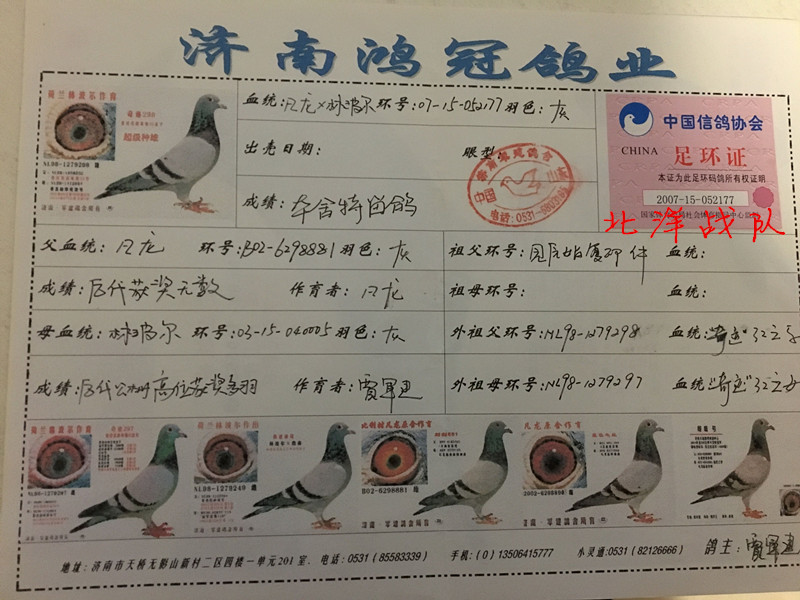 济南鸿冠鸽业
荷兰林波尔作育
奇迹298
超级种雄
NL98-1279298 雄
血统：凡龙×林波尔 环号：07-15-052177 羽色：灰
出壳日期： 眼型：
成绩：本舍特留鸽
中国
电话：0531-
中国信鸽协会
CHINA 足环证
本证为此足环码鸽所有权证明
2007-15-052177
北洋战队
父血统：凡龙 环号：B02-6298881 羽色：灰
祖父环号：见原始复印件 血统：
成绩：历代获奖无数 作育者：凡龙
祖母环号： 血统：
母血统：林波尔 环号：03-15-040005 羽色：灰
外祖父环号：NL98-1279298 血统：“奇迹”32之子
成绩：历代公棚高位获奖多羽 作育者：贾军建
外祖母环号：NL98-1279297 血统：“奇迹”32之女
荷兰林波尔作育
奇迹297
NL98-1279297 雌
荷兰林波尔作育
NL98-1279249 雄
比利时凡龙原舍作育
B02-6298881
凡龙原舍作育
地址：济南市天桥无影山新村二区四楼一单元201室. 电话：0531（85583339） 手机：(0) 13506415777 小灵通:0531 (82126666) 鸽主：贾军建